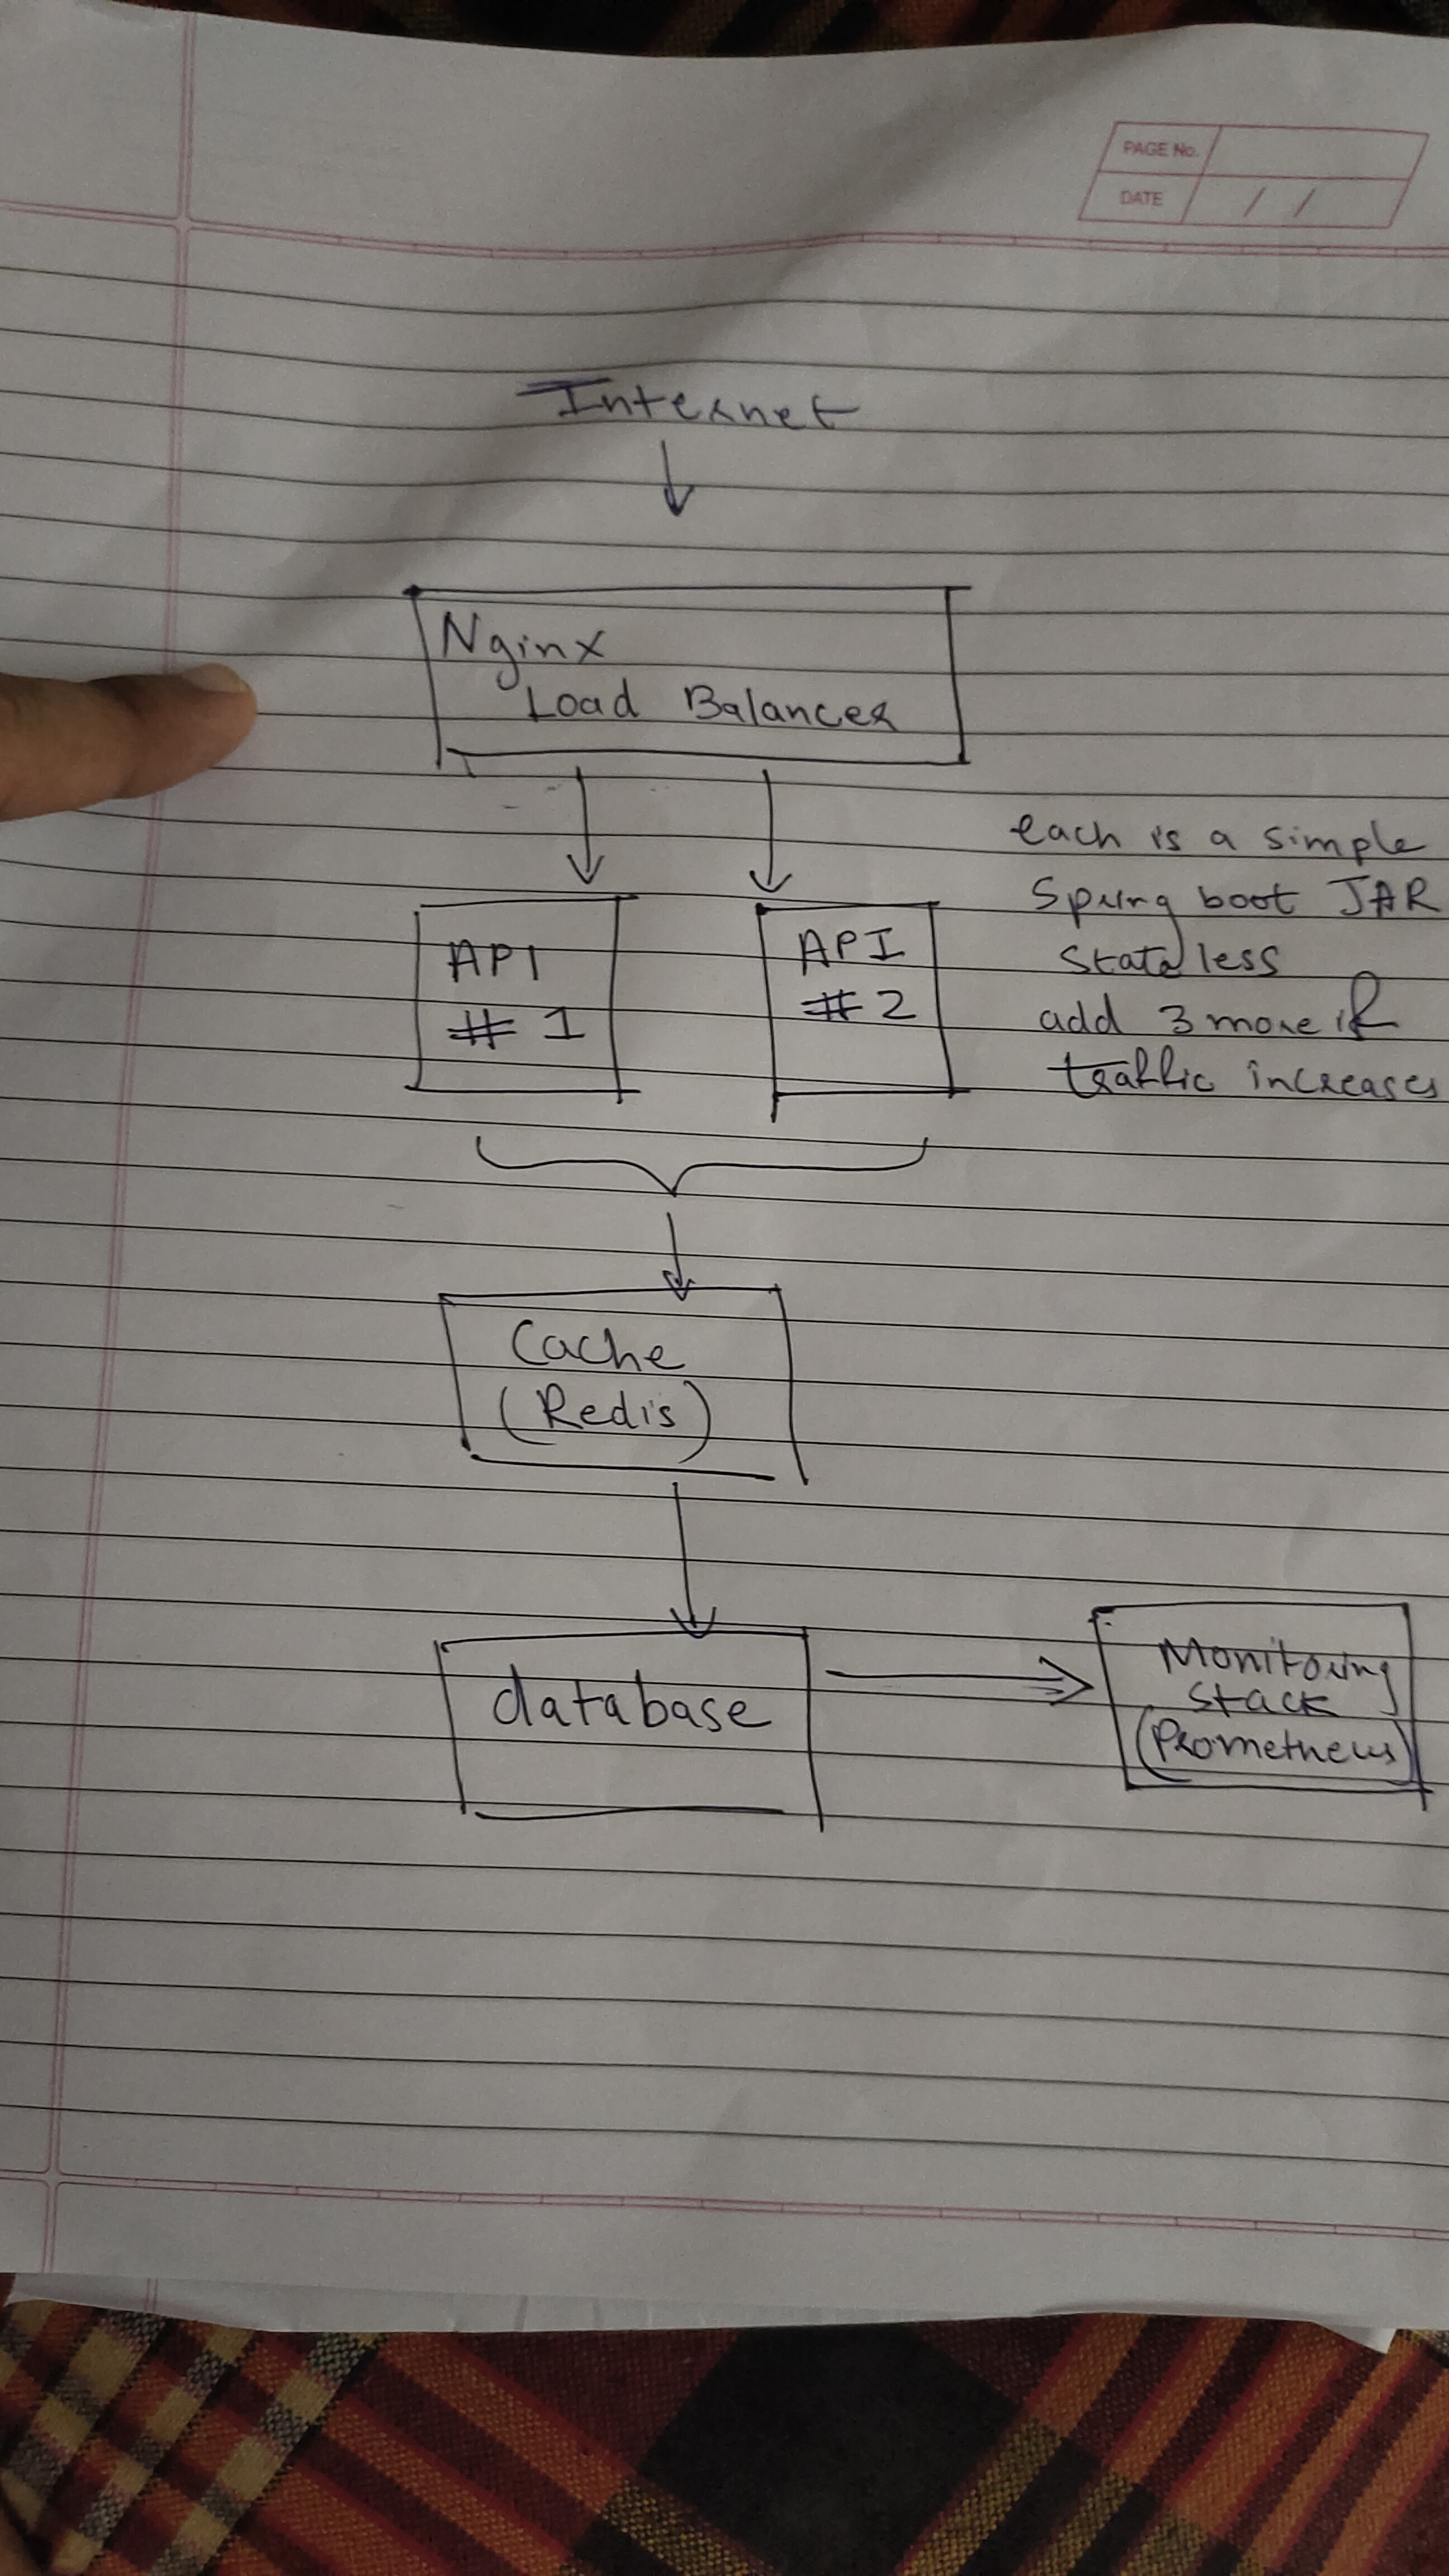 PAGE No.
DATE / /
Internet
Nginx
Load Balancer
each is a simple
Spring boot JAR
stateless
add 3 more if
traffic increases
API
# 1
API
# 2
Cache
(Redis)
database
Monitoring
Stack
(Prometheus)